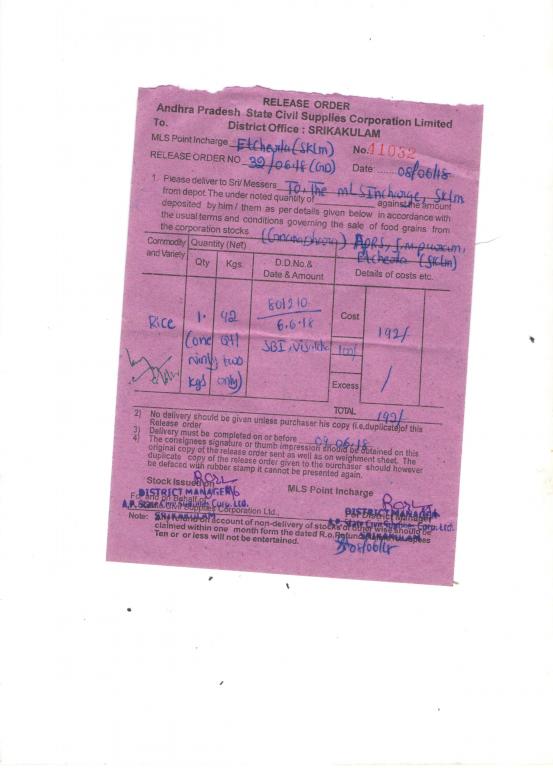 RELEASE ORDER
Andhra Pradesh State Civil Supplies Corporation Limited
To. District Office : SRIKAKULAM
MLS Point Incharge Etcherla (SKLM) No. 41032
RELEASE ORDER NO 32/06.18 (GD) Date: 08/06/18
1. Please deliver to Sri/ Messers To, The MLS Incharge, SKLM
from depot. The under noted quantity of against the amount
deposited by him / them as per details given below in accordance with
the usual terms and conditions governing the sale of food grains from
the corporation stocks APRS, S.M.puram,
Etcherla (SKLM)
Commodity and Variety Quantity (Net) Qty Kgs. D.D.No.& Date & Amount Details of costs etc.
Rice 1. 92 801210 Cost 192/
(one Qtl 6.6.18
ninty two SBI,
kgs only) Excess /
TOTAL 192/
2) No delivery should be given unless purchaser his copy (i.e,duplicate)of this
Release order
3) Delivery must be completed on or before 09.06.18
4) The consigness signature or thumb impression should be obtained on this
original copy of the release order sent as well as on weighment sheet. The
duplicate copy of the release order given to the ourchaser should however
be defaced with rubber stamp it cannot be presented again.
Stock Issued on MLS Point Incharge
DISTRICT MANAGER DISTRICT MANAGER
For and on Behalf of For District Manager
A.P. State Civil Supplies Corporation Ltd., A.P. State Civil Supplies Corp. Ltd.
SRIKAKULAM SRIKAKULAM
Note: Any refund on account of non-delivery of stocks or other wise should be
claimed within one month form the dated R.o.Refund
Ten or or less will not be entertained.
08/06/18